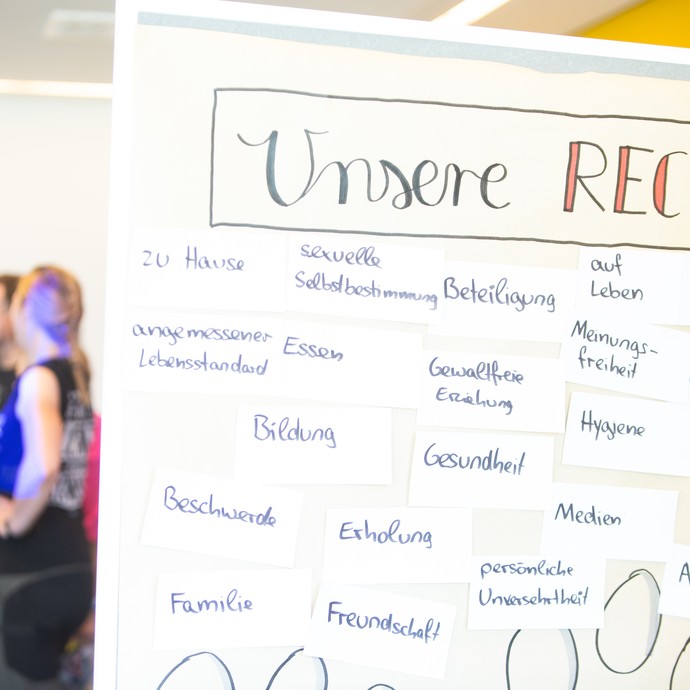 Unsere REC
zu Hause
sexuelle
Selbstbestimmung
Beteiligung
auf
Leben
angemessener
Lebensstandard
Essen
Gewaltfreie
Erziehung
Meinungs-
freiheit
Bildung
Gesundheit
Hygiene
Beschwerde
Erholung
Medien
Familie
Freundschaft
persönliche
Unversehrtheit
A